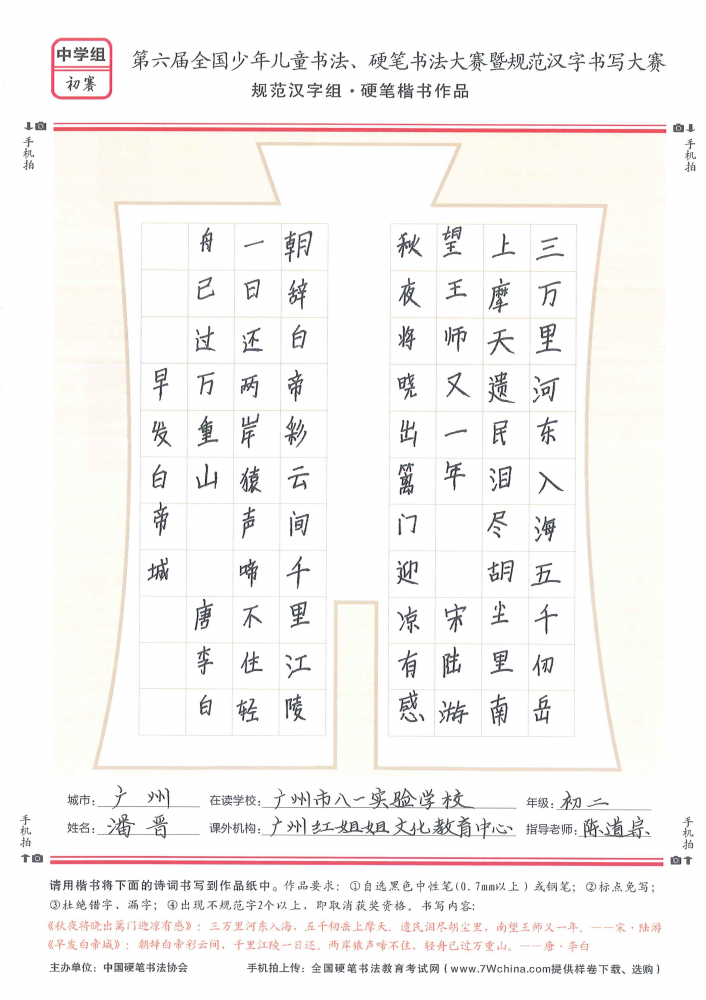 中学组
初赛
第六届全国少年儿童书法、硬笔书法大赛暨规范汉字书写大赛
规范汉字组·硬笔楷书作品
手机拍
手机拍
三万里河东入海五千仞岳
上摩天遗民泪尽胡尘里南
望王师又一年 宋陆游
秋夜将晓出篱门迎凉有感
朝辞白帝彩云间千里江陵
一日还两岸猿声啼不住轻
舟已过万重山 唐李白
早发白帝城
城市：广州 在读学校：广州市八一实验学校 年级：初二
姓名：潘晋 课外机构：广州红姐姐文化教育中心 指导老师：陈道宗
手机拍
手机拍
请用楷书将下面的诗词书写到作品纸中。作品要求：①自选黑色中性笔(0.7mm以上)或钢笔；②标点免写；
③杜绝错字、漏字；④出现不规范字2个以上，即取消获奖资格。书写内容：
《秋夜将晓出篱门迎凉有感》：三万里河东入海，五千仞岳上摩天。遗民泪尽胡尘里，南望王师又一年。——宋·陆游
《早发白帝城》：朝辞白帝彩云间，千里江陵一日还。两岸猿声啼不住，轻舟已过万重山。——唐·李白
主办单位：中国硬笔书法协会 手机拍上传：全国硬笔书法教育考试网（www.7Wchina.com提供样卷下载、选购）